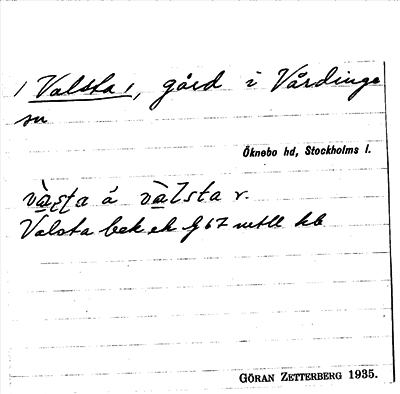 / Valsta /, gård i Vårdinge
sn
Öknebo hd, Stockholms l.
va̱sta å va̱lsta r.
Valsta bek ek J 67 mtll kb
GÖRAN ZETTERBERG 1935.